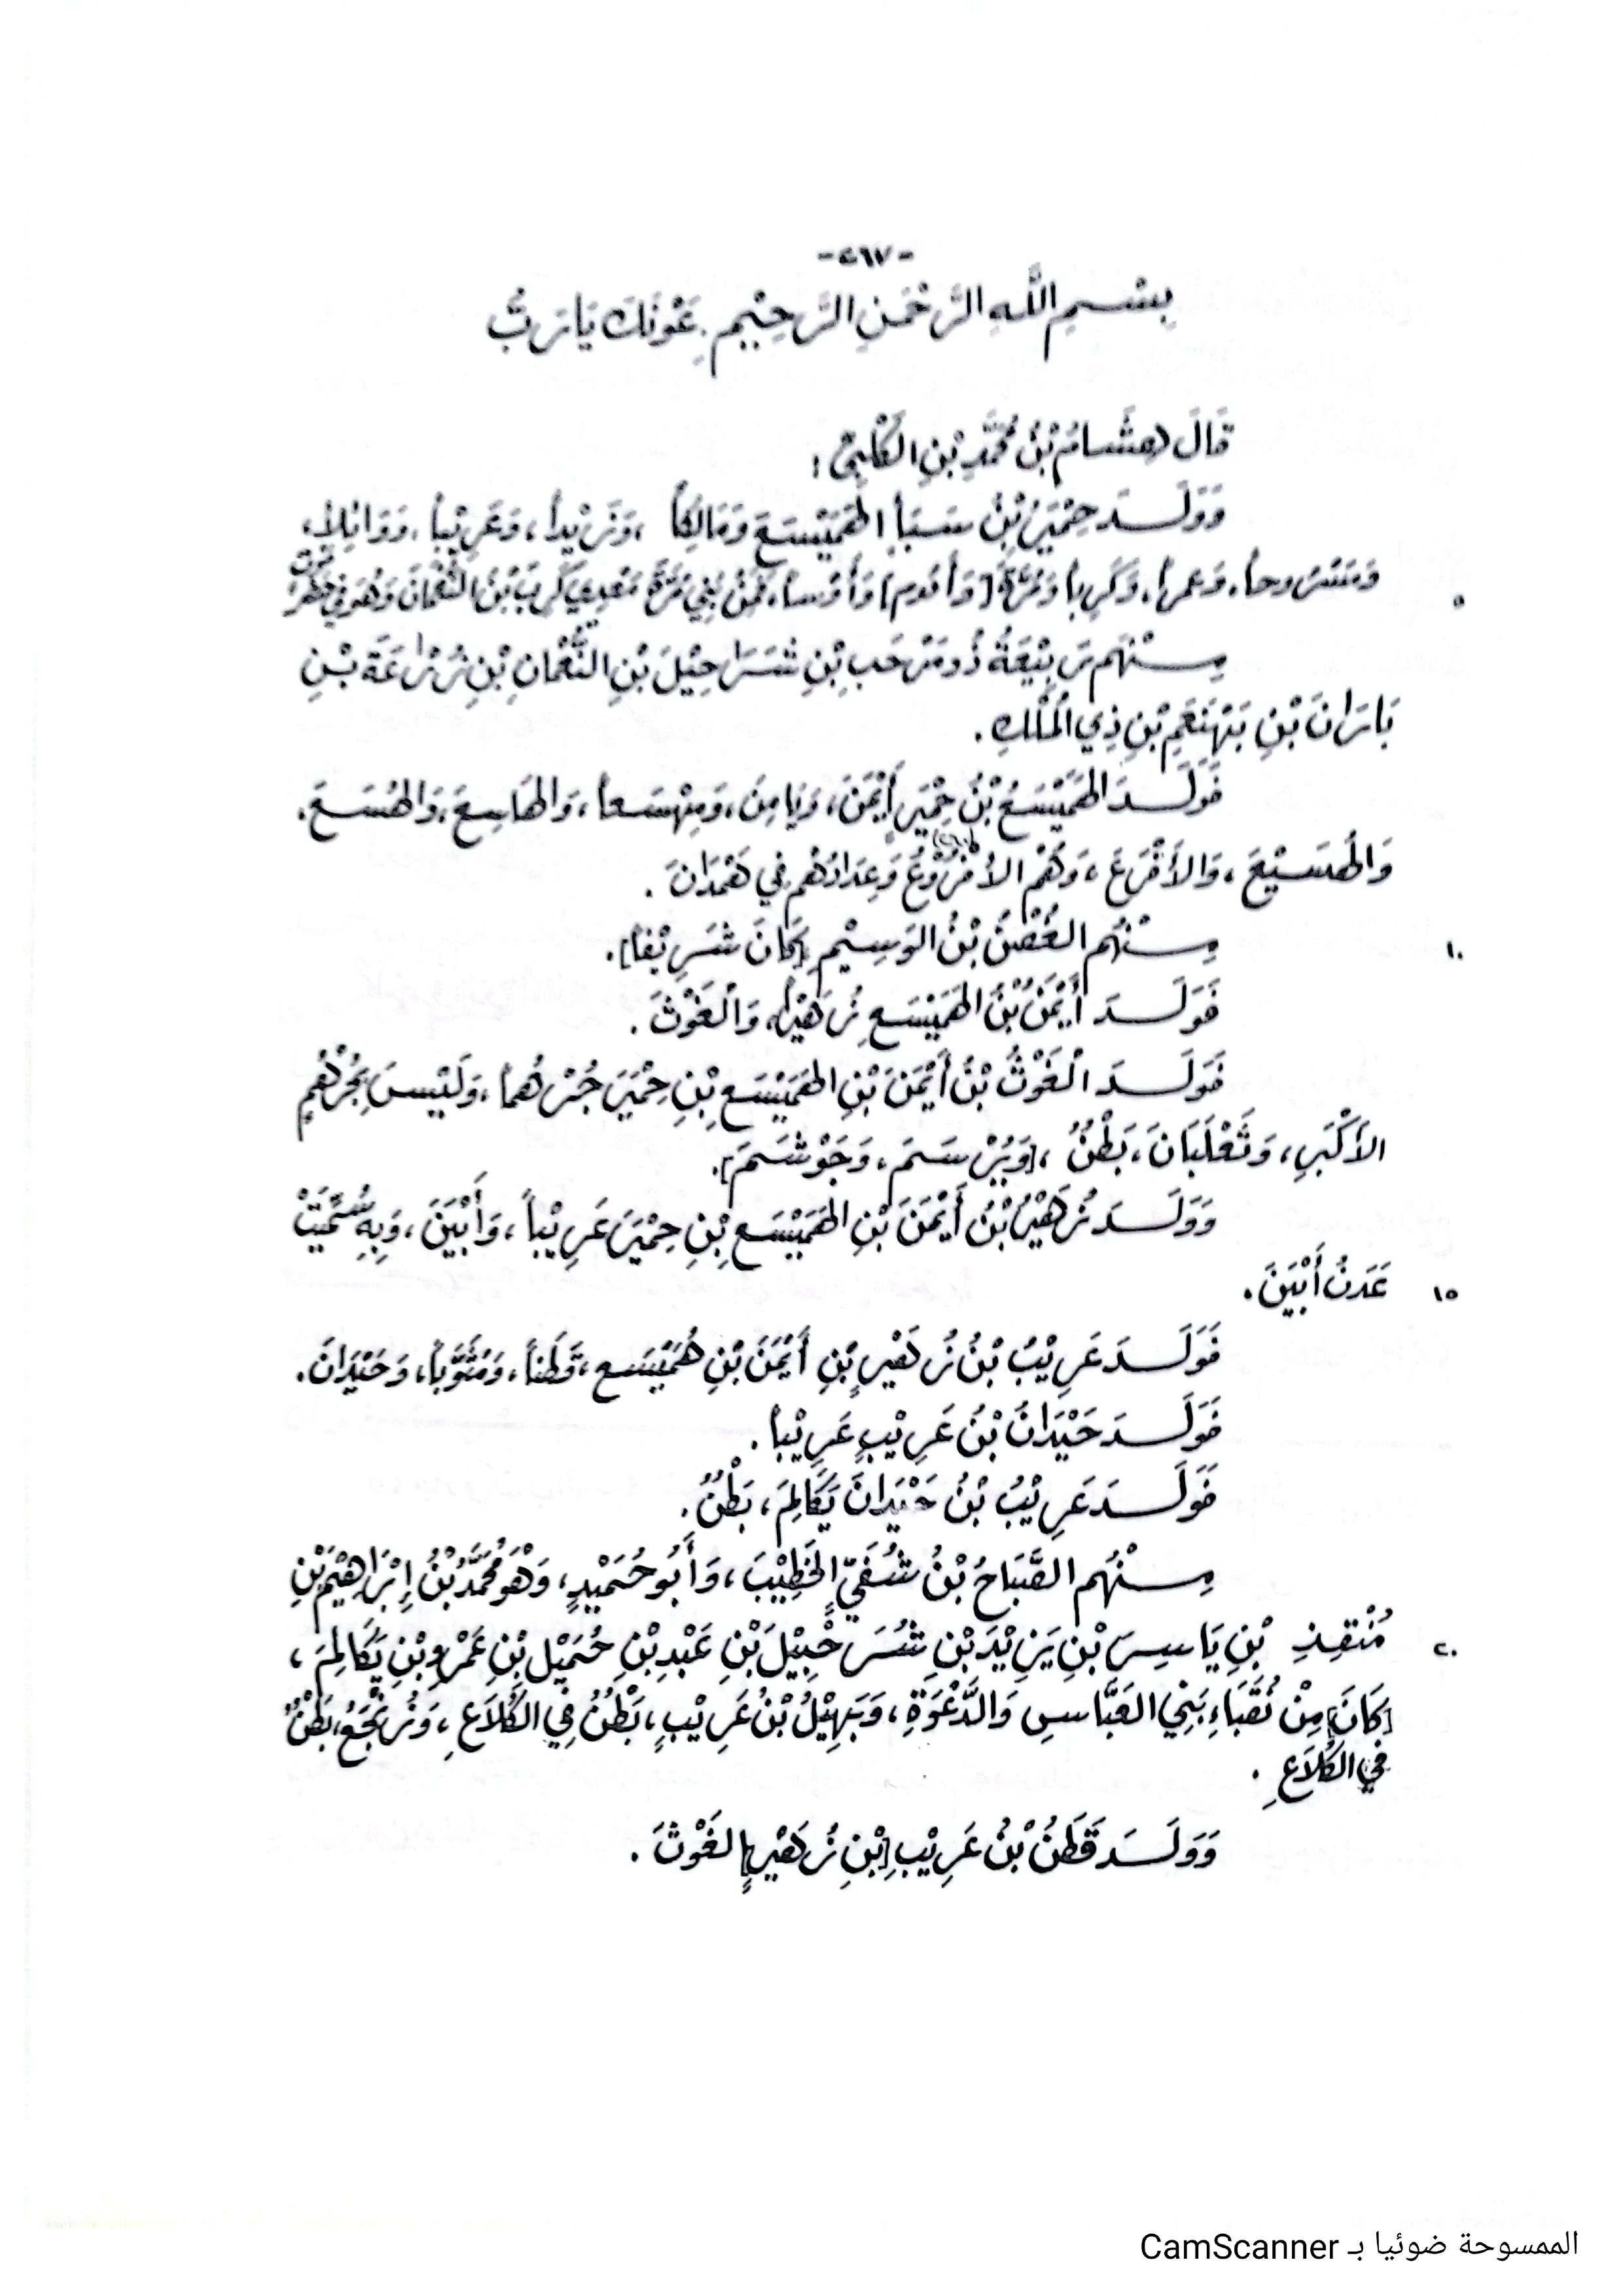 -٤٦٧-
بِسْمِ اللَّهِ الرَّحْمَنِ الرَّحِيْمِ. عَوْنَكَ يَا رَبُّ
قَالَ هِشَامُ بْنُ مُحَمَّدِ بْنِ الكَلْبِيِّ:
وَوَلَدَ حِمْيَرُ بْنُ سَبَأٍ الهَمَيْسَعَ وَمَالِكاً، وَزَيْداً، وَعَرِيْباً، وَوَائِلاً،
وَمَسْرُوحاً، وَعَمراً، وَكَرِباً وَمُرَّةَ [وَأ وَأَوْساً، فَمِنْ بَنِي مُرَّةَ مَعدِي كَرِبَ بْنُ النُّعْمَانَ وَهُوَ فِي حَضْرَمَوْتَ
٥
مِنْهُم رَبِيْعَةُ ذُو مَرْحَبِ بْنِ شَرَاحِيْلَ بْنِ النُّعْمَانِ بْنِ زُرْعَةَ بْنِ
بَارَانَ بْنِ بْنِ ذِي المُلْكِ.
فَوَلَدَ الهَمَيْسَعُ بْنُ حِمْيَرٍ أَيْمَنَ، وَيَامِنَ، وَمِهْسَعاً، وَالهَاسِعَ، وَالهُسَعَ.
وَالهُسَيْعَ، وَالأَقْرَعَ، وَهُمْ وَعِدَادُهُم فِي هَمْدَانَ.
مِنْهُم الغُصْنُ بْنُ الوَسِيْمِ [كَانَ شَرِيْفاً].
١٠
فَوَلَدَ أَيْمَنُ بْنُ الهَمَيْسَعِ زُهَيْراً، وَالْغَوْثَ.
فَوَلَدَ الْغَوْثُ بْنُ أَيْمَنَ بْنِ الهَمَيْسَعِ بْنِ حِمْيَرَ جُرْهُماً، وَلَيْسَ بِجُرْهُمٍ
الأَكْبَرِ، وَثَعْلَبَانَ، بَطْنٌ، [وَبُرْسَمَ، وَجَوْشَمَ].
وَوَلَدَ زُهَيْرُ بْنُ أَيْمَنَ بْنِ الهَمَيْسَعِ بْنِ حِمْيَرَ عَرِيْباً، وَأَبْيَنَ، وَبِهِ سُمِّيَتْ
عَدَنُ أَبْيَنَ.
١٥
فَوَلَدَ عَرِيْبُ بْنُ زُهَيْرِ بْنِ أَيْمَنَ بْنِ هُمَيْسَعِ، قَطَناً، وَمُثَوَّباً، وَحَيْدَانَ.
فَوَلَدَ حَيْدَانُ بْنُ عَرِيْبٍ عَرِيْباً.
فَوَلَدَ عَرِيْبُ بْنُ حَيْدَانَ يَكَالِمَ، بَطْنٌ.
مِنْهُم الصَّبَاحُ بْنُ شُفَيٍّ الخَطِيْبَ، وَأَبُو حُمَيْدٍ، وَهْوَ مُحَمَّدُ بْنُ إِبْرَاهِيْمَ بْنِ
مُنْقِذِ بْنِ يَاسِرِ بْنِ يَزِيْدَ بْنِ شُرَحْبِيْلَ بْنِ عَبْدِ بْنِ حُمَيْلِ بْنِ عَمْرِو بْنِ يَكَالِمَ،
٢٠
[كَانَ] مِنْ نُقَبَاءِ بَنِي العَبَّاسِ وَالدَّعْوَةِ، وَبَهِيْلُ بْنُ عَرِيْبٍ، بَطْنٌ فِي الكَلَاعِ، وَزُنْجُعُ، بَطْنٌ
فِي الكَلَاعِ.
وَوَلَدَ قَطَنُ بْنُ عَرِيْبِ [بْنِ زُهَيْرٍ] الغَوْثَ.
الممسوحة ضوئيا بـ CamScanner